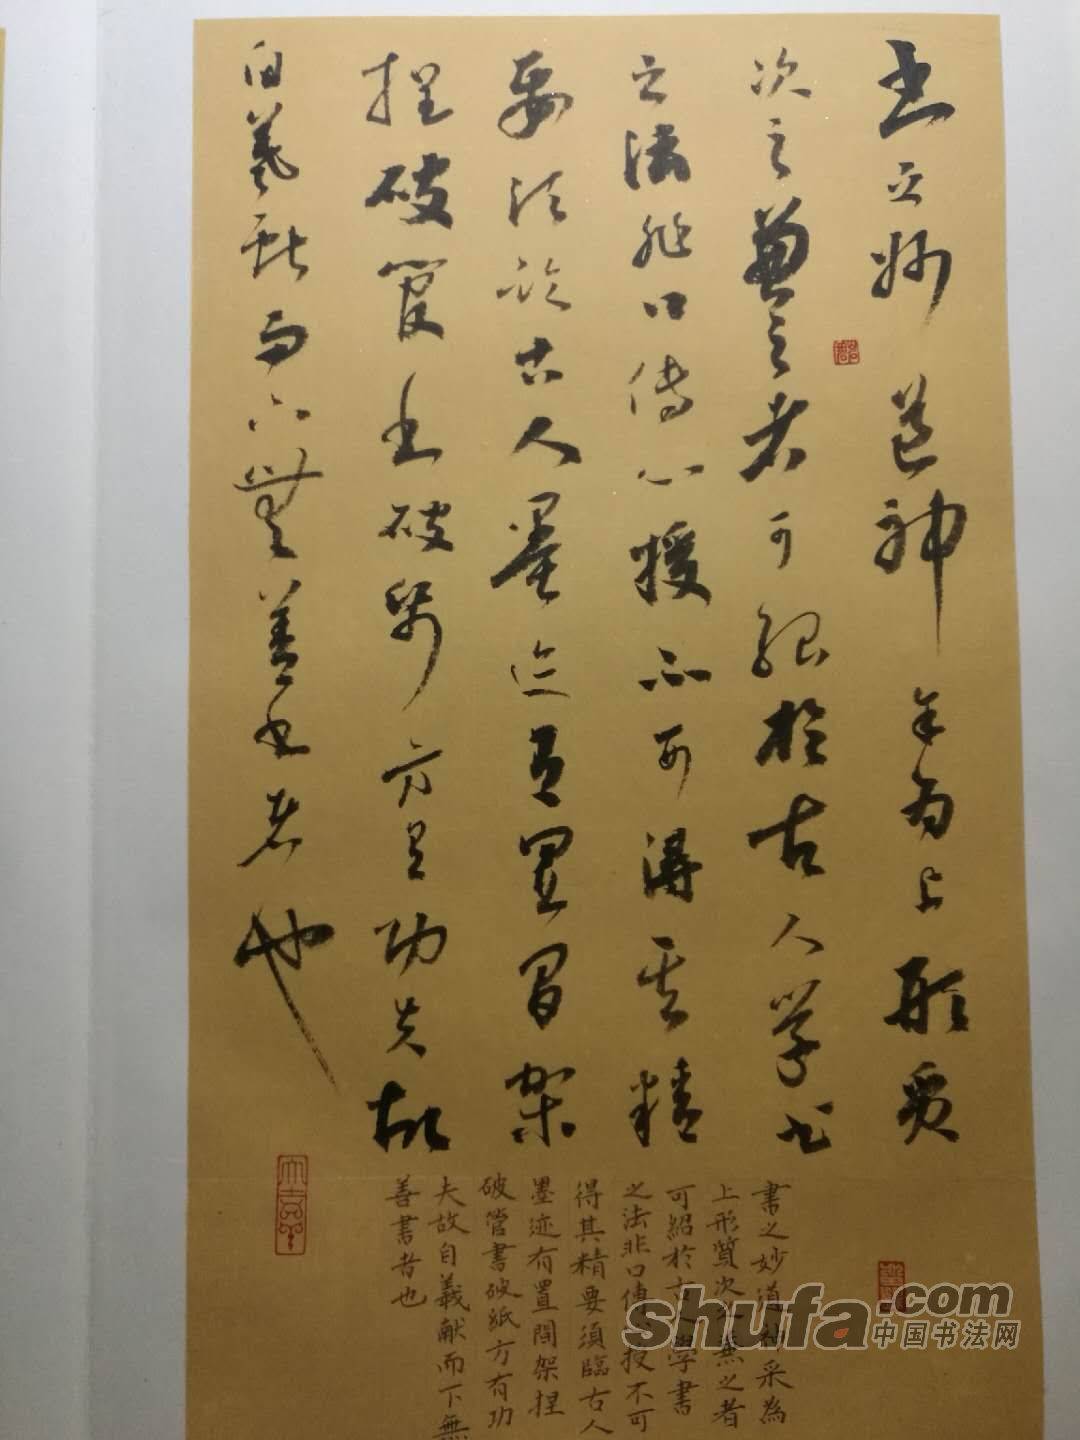 书之妙道神采为上形质
次之兼之者可绍于古人学书
之法非口传心授不可得其精
要须临古人墨迹有置间架
捏破管书破纸方有功夫故
自羲献而下无善书者也
書之妙道神采為
上形質次之兼之者
可紹於古人學書
之法非口傳授不可
得其精要須臨古人
墨迹有置間架捏
破管書破紙方有功
夫故自義献而下無
善書者也
shufa.com
中国书法网